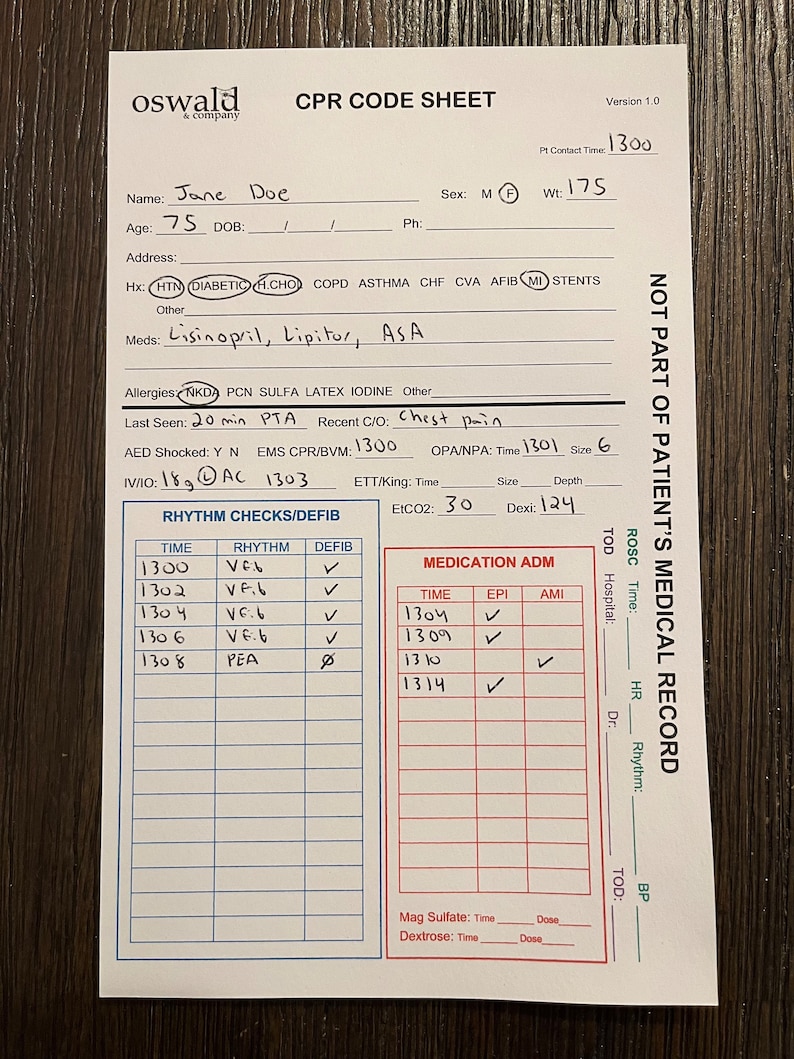 oswald
& company
CPR CODE SHEET
Version 1.0
Pt Contact Time: 1300
Name: Jane Doe Sex: M F Wt: 175
Age: 75 DOB: / / Ph:
Address:
Hx: HTN DIABETIC H.CHOL COPD ASTHMA CHF CVA AFIB MI STENTS
Other
Meds: Lisinopril, Lipitor, ASA
Allergies: NKDA PCN SULFA LATEX IODINE Other
Last Seen: 20 min PTA Recent C/O: Chest pain
AED Shocked: Y N EMS CPR/BVM: 1300 OPA/NPA: Time 1301 Size 6
IV/IO: 18g L AC 1303 ETT/King: Time Size Depth
EtCO2: 30 Dexi: 124
RHYTHM CHECKS/DEFIB
TIME RHYTHM DEFIB
1300 V Fib ✓
1302 V Fib ✓
1304 V Fib ✓
1306 V Fib ✓
1308 PEA Ø
MEDICATION ADM
TIME EPI AMI
1304 ✓
1309 ✓
1310 ✓
1314 ✓
Mag Sulfate: Time Dose
Dextrose: Time Dose
TOD Hospital: Dr: TOD:
ROSC Time: HR Rhythm: BP
NOT PART OF PATIENT'S MEDICAL RECORD